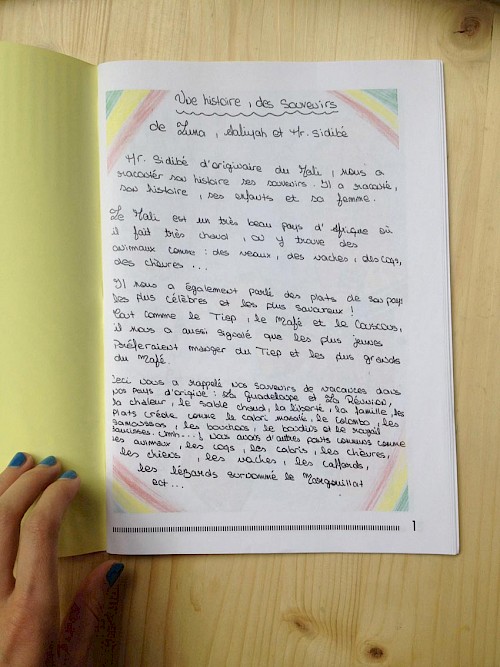 Une histoire, des souvenirs
de Luna, Aaliyah et Mr. Sidibé
Mr. Sidibé d'originaire du Mali, nous a
raconter son histoire ses souvenirs. Il a raconté,
son histoire, ses enfants et sa femme.
Le Mali est un très beau pays d'Afrique où
il fait très chaud, on y trouve des
animaux comme : des veaux, des vaches, des coqs,
des chèvres ...
Il nous a également parlé des plats de son pays
les plus célèbres et les plus savoureux !
Tout comme le Tiep, le Mafé et le Couscous,
il nous a aussi signalé que les plus jeunes
préféraient manger du Tiep et les plus grands
du Mafé.
Ceci nous a rappelé nos souvenirs de vacances dans
nos pays d'origine : La Guadeloupe et La Réunion,
la chaleur, le sable chaud, la liberté, la famille, les
plats créole comme le cabri massalé, le colombo, les
samoussas, les bouchons, le boudin et le rougail
saucisses. Umh...! Nous avons d'autres points communs comme
les animaux, les coqs, les cabris, les chèvres,
les chiens, les vaches, les cafards,
les lézards surnommé le Margouillat
ect...
1